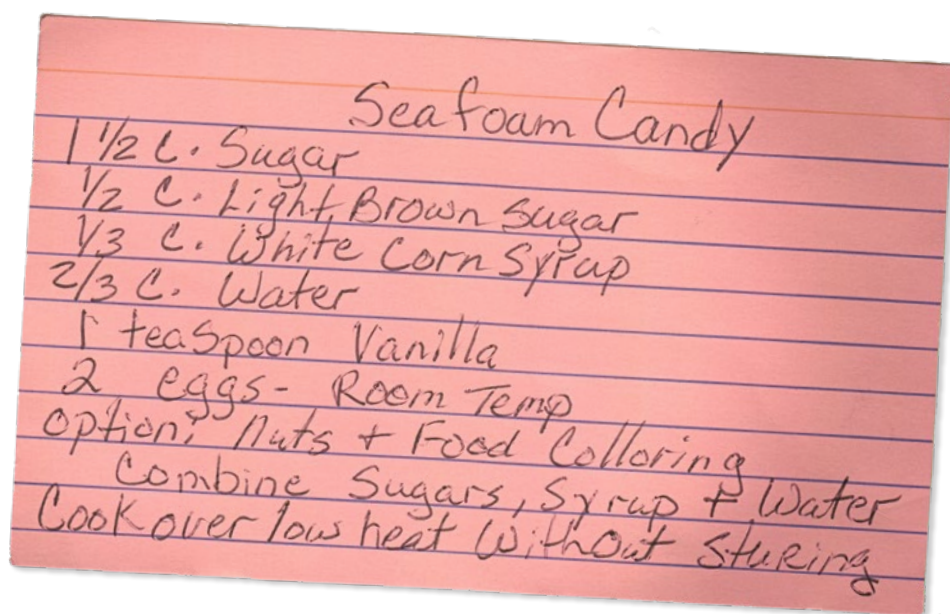 Seafoam Candy
1 1/2 C. Sugar
1/2 C. Light Brown Sugar
1/3 C. White Corn Syrup
2/3 C. Water
1 teaspoon Vanilla
2 eggs - Room Temp
option; Nuts + Food Colloring
Combine Sugars, Syrup + Water
Cook over low heat Without Sturing